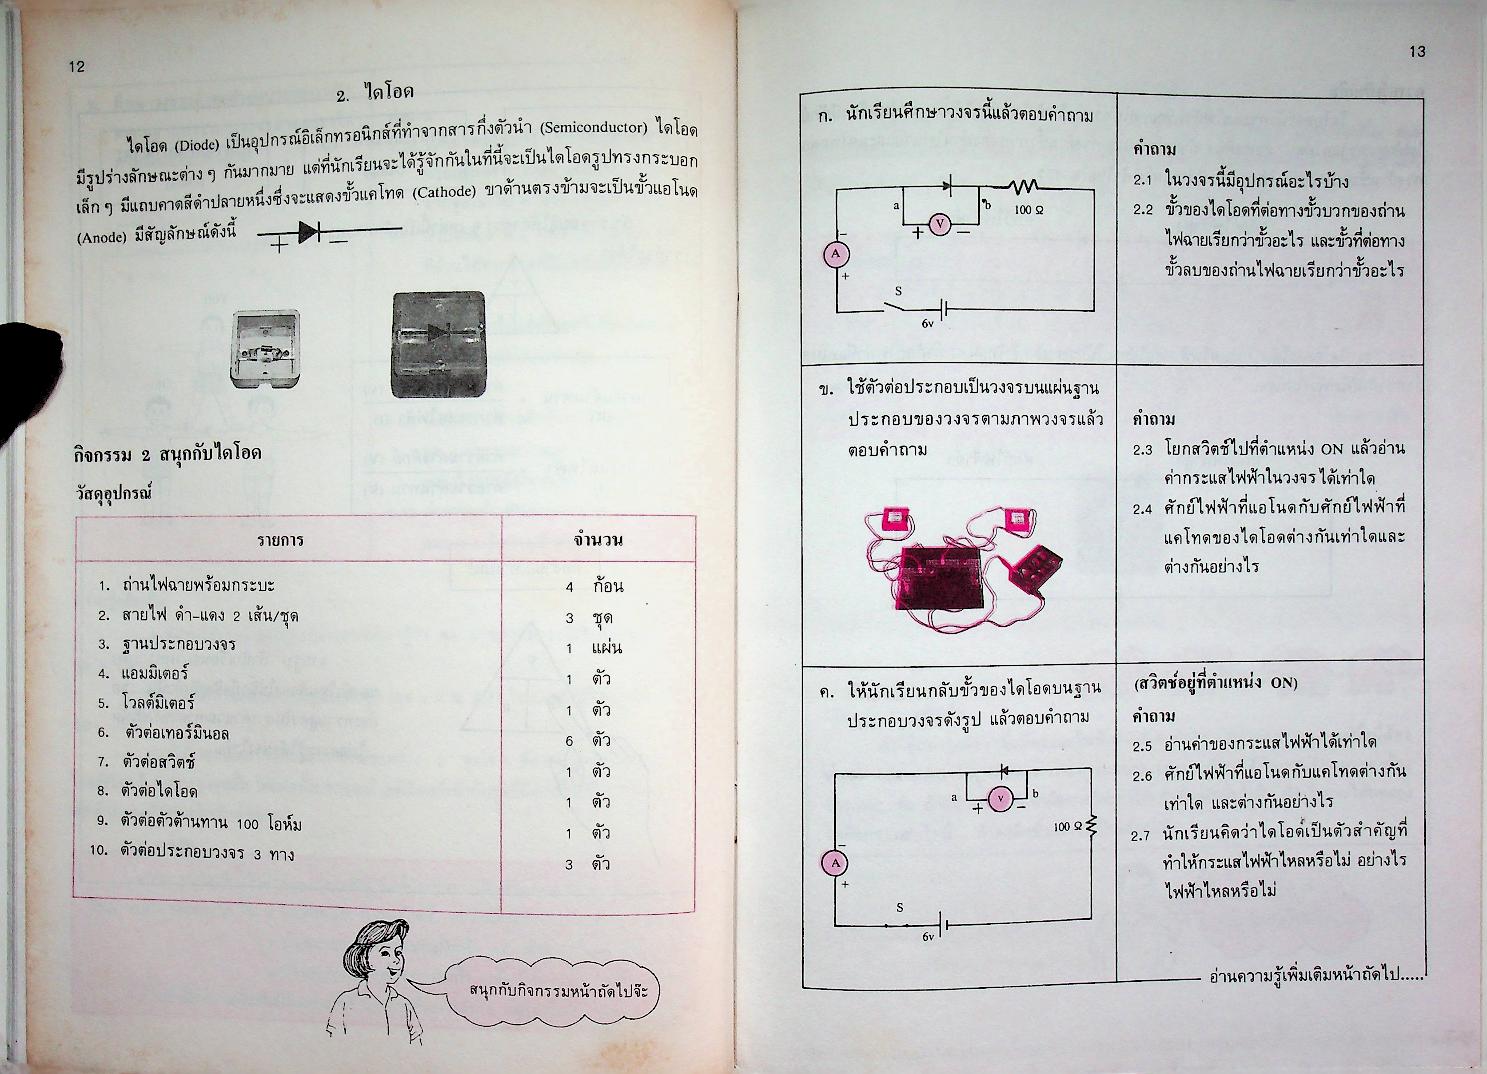 12
2. ไดโอด
ไดโอด (Diode) เป็นอุปกรณ์อิเล็กทรอนิกส์ที่ทำจากสารกึ่งตัวนำ (Semiconductor) ไดโอด
มีรูปร่างลักษณะต่าง ๆ กันมากมาย แต่ที่นักเรียนจะได้รู้จักกันในที่นี้จะเป็นไดโอดรูปทรงกระบอก
เล็ก ๆ มีแถบคาดสีดำปลายหนึ่งซึ่งจะแสดงขั้วแคโทด (Cathode) ขาด้านตรงข้ามจะเป็นขั้วแอโนด
(Anode) มีสัญลักษณ์ดังนี้
+ −
กิจกรรม 2 สนุกกับไดโอด
วัสดุอุปกรณ์
รายการ จำนวน
1. ถ่านไฟฉายพร้อมกระบะ 4 ก้อน
2. สายไฟ ดำ-แดง 2 เส้น/ชุด 3 ชุด
3. ฐานประกอบวงจร 1 แผ่น
4. แอมมิเตอร์ 1 ตัว
5. โวลต์มิเตอร์ 1 ตัว
6. ตัวต่อเทอร์มินอล 6 ตัว
7. ตัวต่อสวิตช์ 1 ตัว
8. ตัวต่อไดโอด 1 ตัว
9. ตัวต่อตัวต้านทาน 100 โอห์ม 1 ตัว
10. ตัวต่อประกอบวงจร 3 ทาง 3 ตัว
สนุกกับกิจกรรมหน้าถัดไปจ๊ะ
13
ก. นักเรียนศึกษาวงจรนี้แล้วตอบคำถาม
a b 100 Ω
+ V −
−
A
+
S
6v
คำถาม
2.1 ในวงจรนี้มีอุปกรณ์อะไรบ้าง
2.2 ขั้วของไดโอดที่ต่อทางขั้วบวกของถ่าน
ไฟฉายเรียกว่าขั้วอะไร และขั้วที่ต่อทาง
ขั้วลบของถ่านไฟฉายเรียกว่าขั้วอะไร
ข. ใช้ตัวต่อประกอบเป็นวงจรบนแผ่นฐาน
ประกอบของวงจรตามภาพวงจรแล้ว
ตอบคำถาม
คำถาม
2.3 โยกสวิตช์ไปที่ตำแหน่ง ON แล้วอ่าน
ค่ากระแสไฟฟ้าในวงจรได้เท่าใด
2.4 ศักย์ไฟฟ้าที่แอโนดกับศักย์ไฟฟ้าที่
แคโทดของไดโอดต่างกันเท่าใดและ
ต่างกันอย่างไร
ค. ให้นักเรียนกลับขั้วของไดโอดบนฐาน
ประกอบวงจรดังรูป แล้วตอบคำถาม
a b
+ v −
100 Ω
−
A
+
S
6v
(สวิตช์อยู่ที่ตำแหน่ง ON)
คำถาม
2.5 อ่านค่าของกระแสไฟฟ้าได้เท่าใด
2.6 ศักย์ไฟฟ้าที่แอโนดกับแคโทดต่างกัน
เท่าใด และต่างกันอย่างไร
2.7 นักเรียนคิดว่าไดโอด์เป็นตัวสำคัญที่
ทำให้กระแสไฟฟ้าไหลหรือไม่ อย่างไร
ไฟฟ้าไหลหรือไม่
อ่านความรู้เพิ่มเติมหน้าถัดไป.....